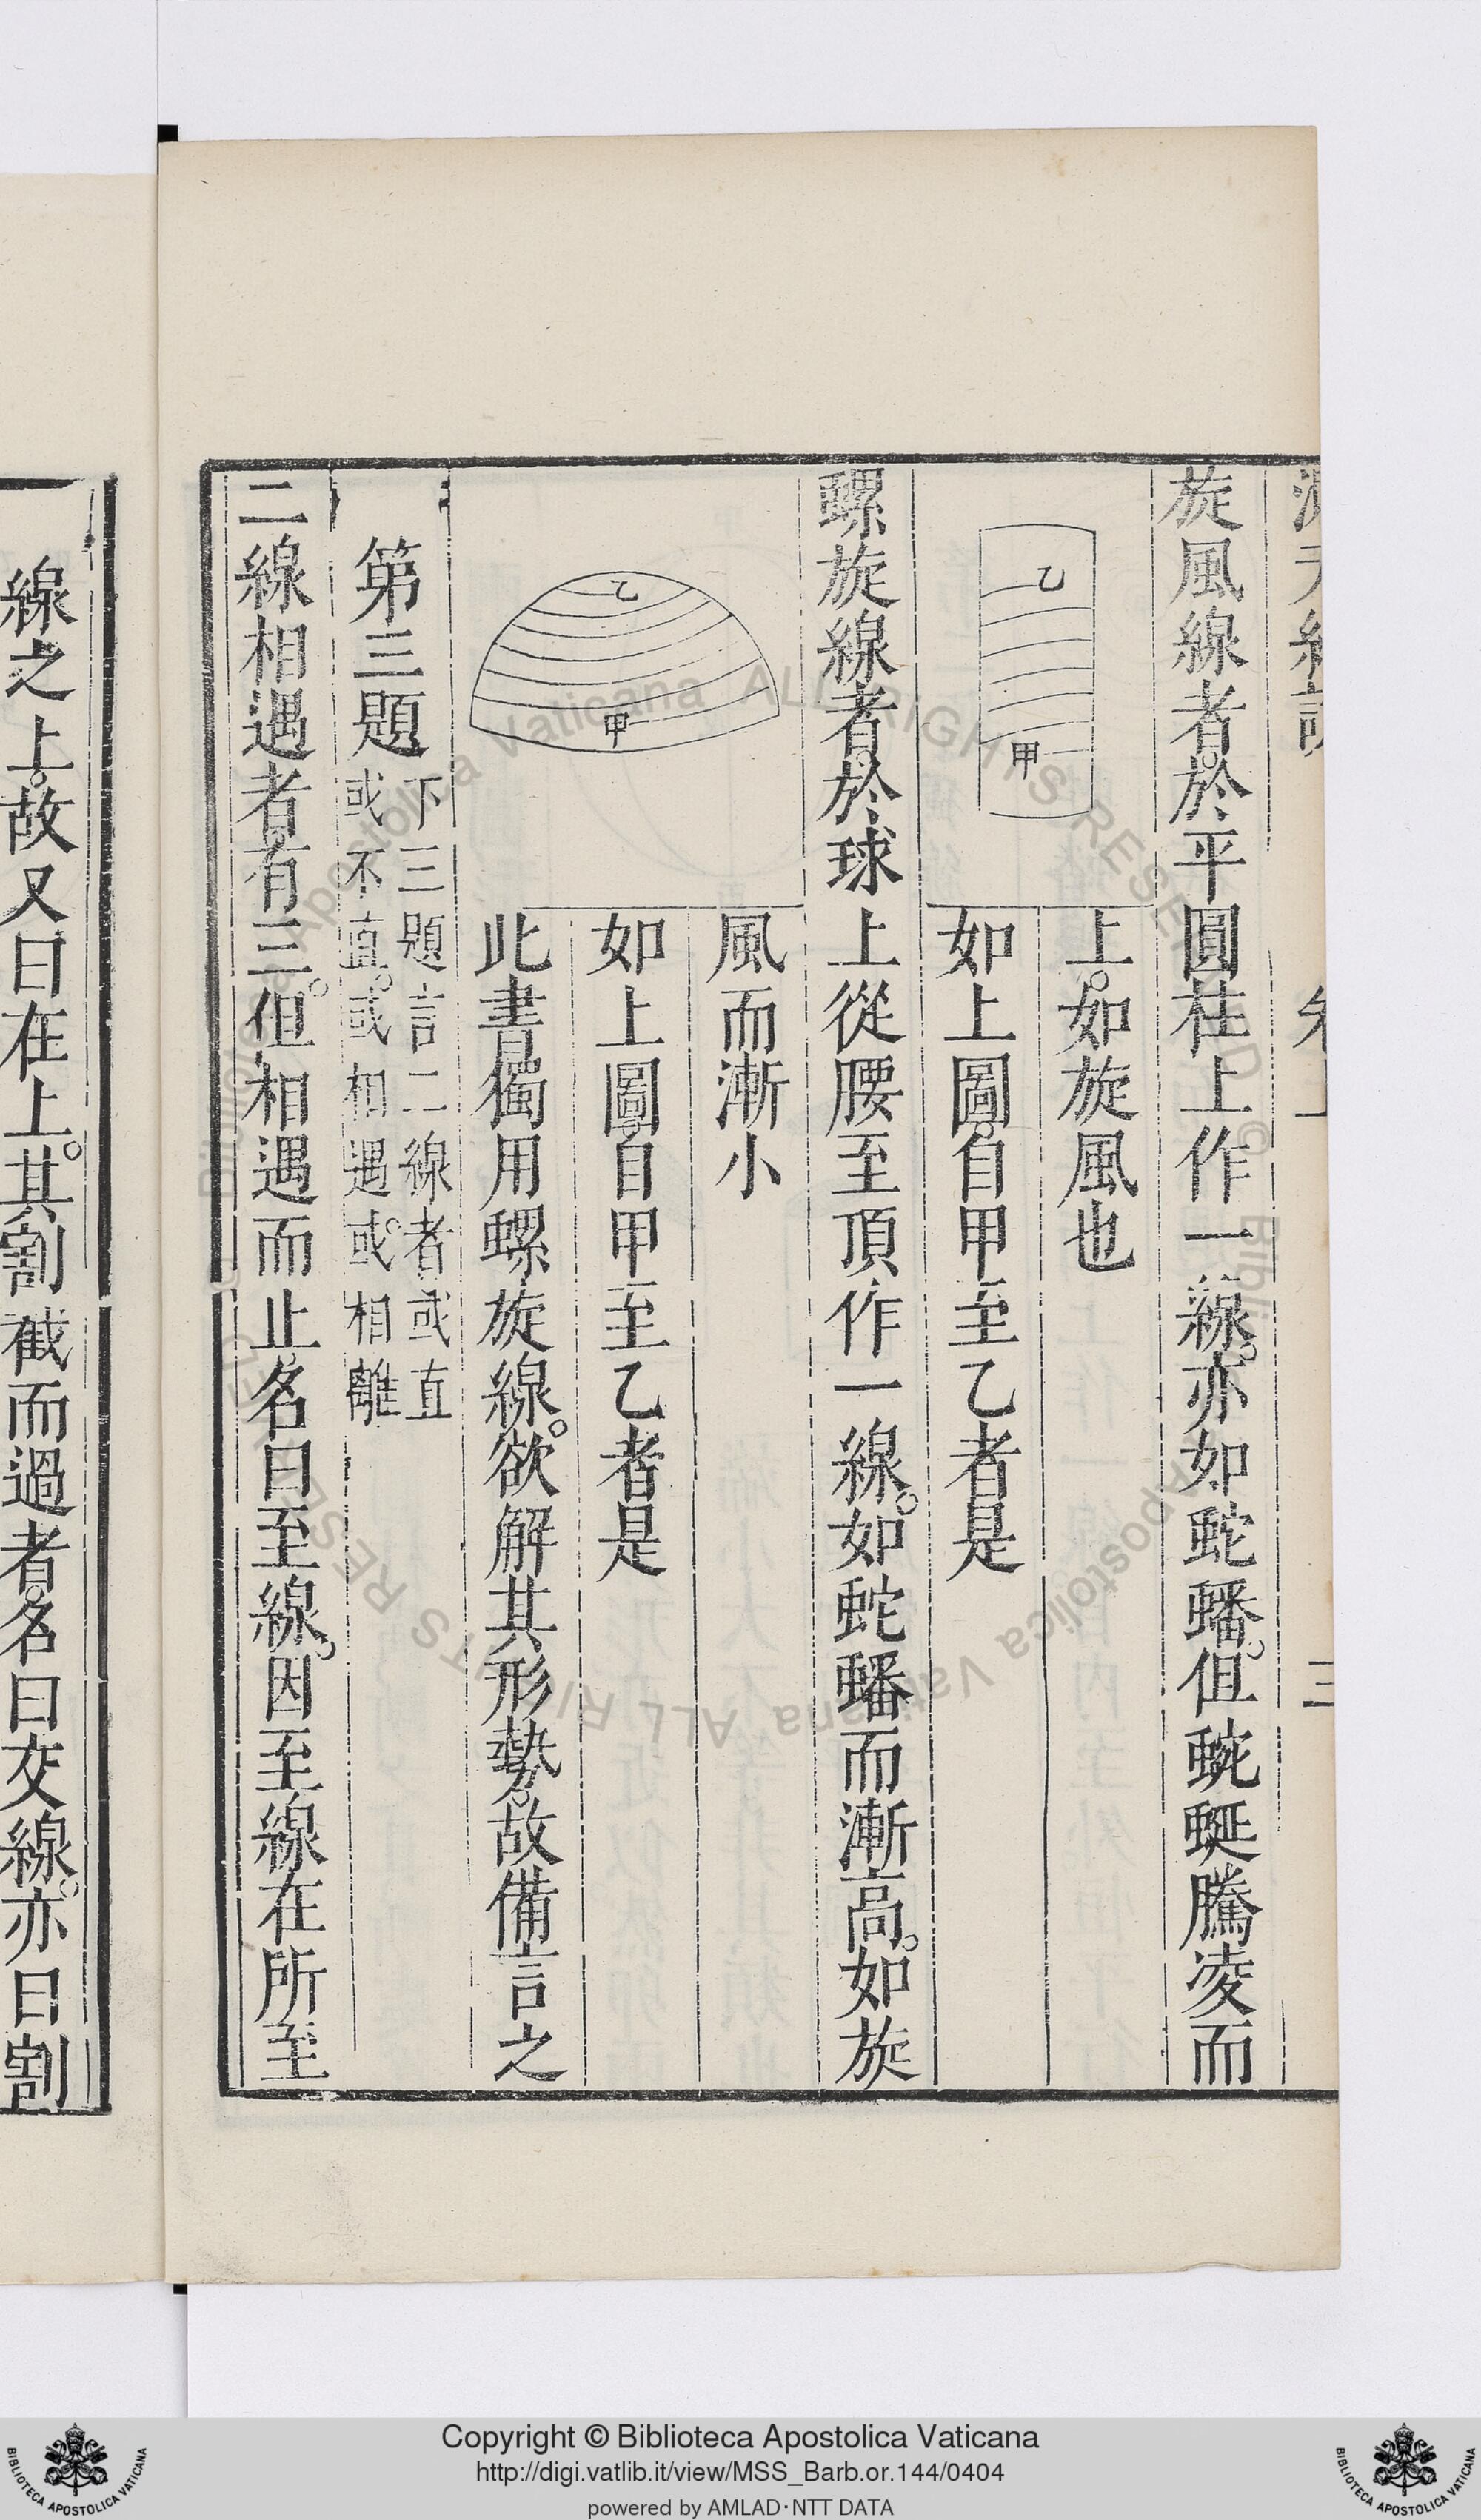 旋風線者。於平圓柱上作一線。亦如蛇蟠。但蜿蜒騰凌而
上。如旋風也
乙
甲
如上圖。自甲至乙者是
螺旋線者。於球上從腰至頂作一線。如蛇蟠而漸高。如旋
風而漸小
乙
甲
如上圖。自甲至乙者是
此書獨用螺旋線。欲解其形勢。故備言之
第三題
下三題言二線者或直
或不直。或相遇。或相離
二線相遇者。有三。但相遇而止。名曰至線。因至線在所至
線之上。故又曰在上。其割截而過者。名曰交線。亦曰割
Copyright © Biblioteca Apostolica Vaticana
http://digi.vatlib.it/view/MSS_Barb.or.144/0404
powered by AMLAD·NTT DATA
BIBLIOTECA APOSTOLICA VATICANA
BIBLIOTECA APOSTOLICA VATICANA